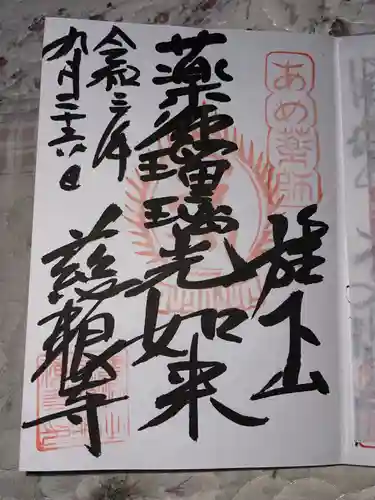 あめ薬師
薬師瑠璃光如来
慈眼寺
令和三年
九月二十六日